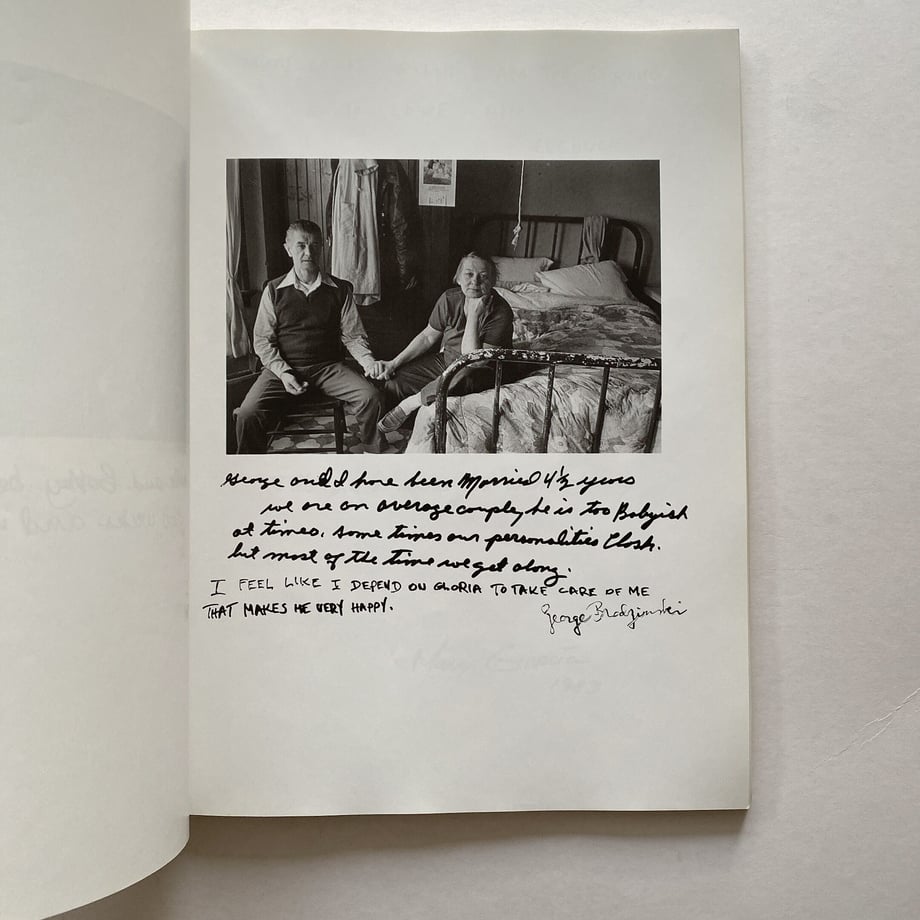 George and I have been Married 4½ years
we are an average couple, he is too Babyish
at times. some times our personalities Clash.
but most of the time we get along.
I FEEL LIKE I DEPEND ON GLORIA TO TAKE CARE OF ME
THAT MAKES ME VERY HAPPY.
George Brodzinski